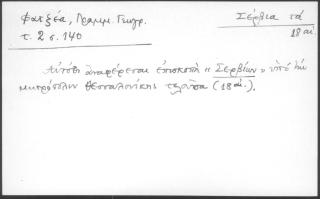 Φατζέα, Γραμμ. Γεωγρ.
τ. 2 σ. 140
Σέρβια τά
18 αἰ.
Αὐτόθι ἀναφέρεται ἐπισκοπὴ « Σερβίων » ὑπὸ τὴν
μητρόπολιν Θεσσαλονίκης (18 αἰ.).